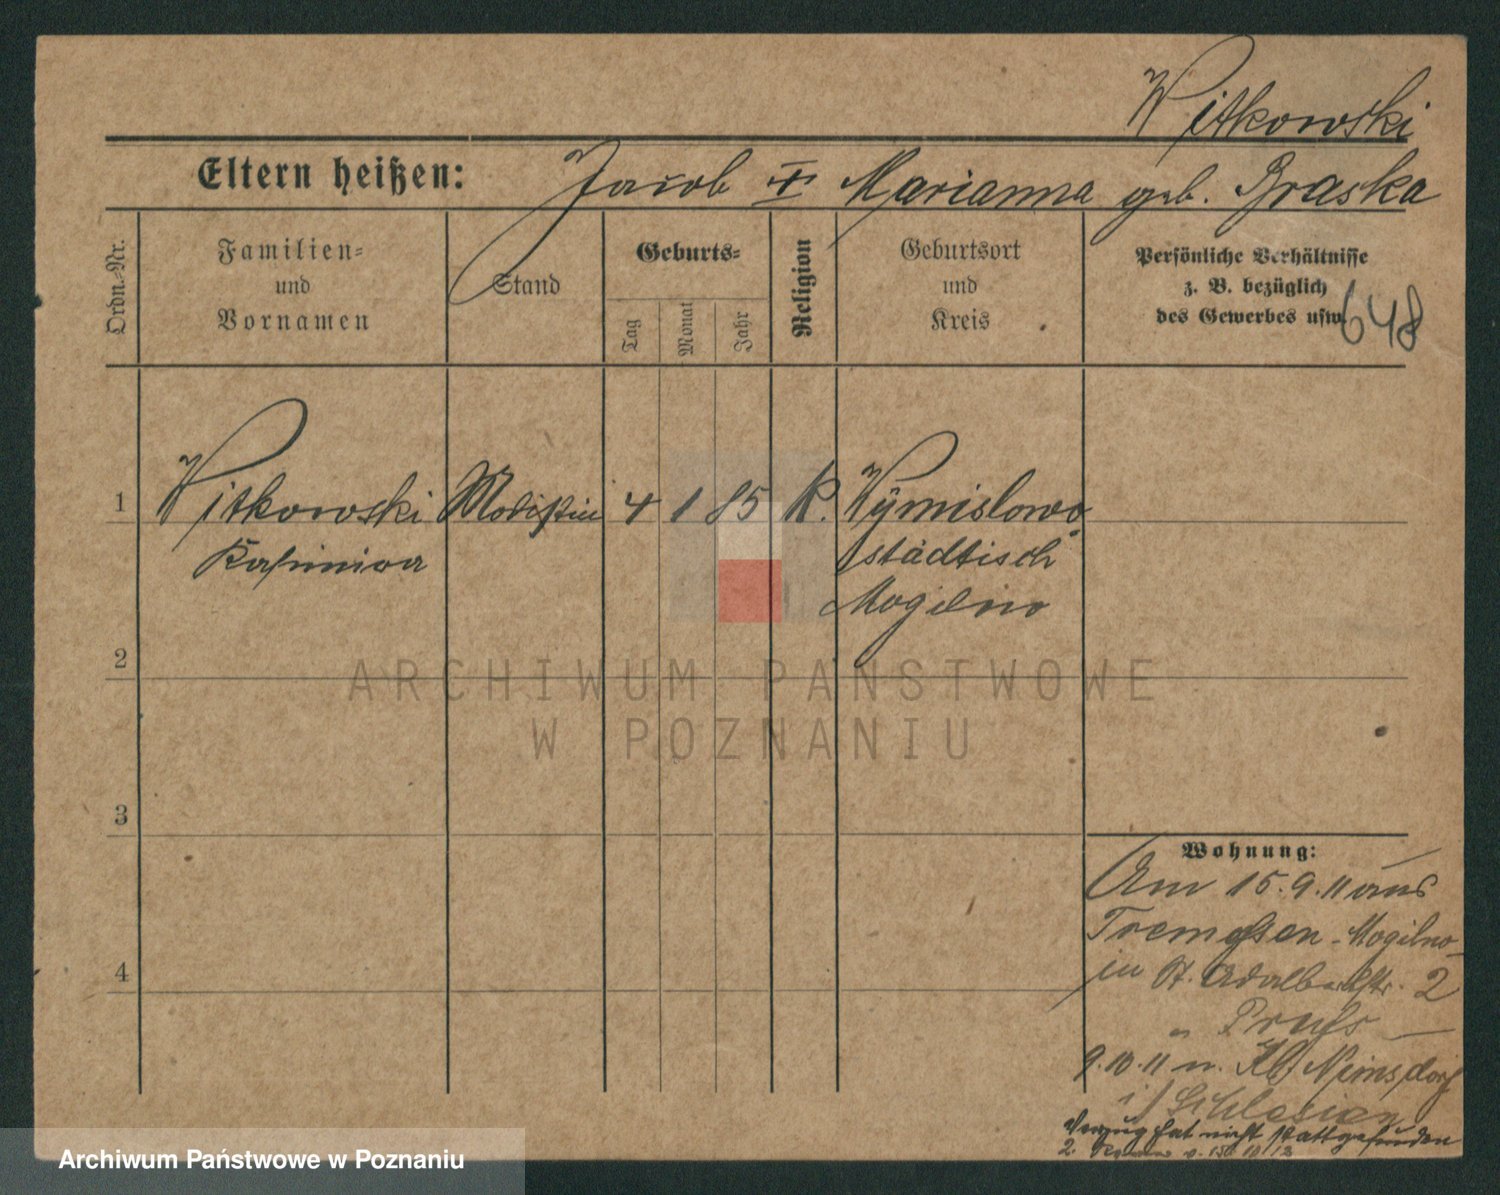 Witkowski
Eltern heißen: Jacob + Marianna geb. Braska
Ordn.-Nr.
Familien-
und
Vornamen
Stand
Geburts-
Tag
Monat
Jahr
Religion
Geburtsort
und
Kreis
Persönliche Verhältnisse
z. B. bezüglich
des Gewerbes usw.
648
1 Witkowski Modistin 4 1 85 K. Wymislowo
Kasimira städtisch
Mogilno
2
ARCHIWUM PAŃSTWOWE
W POZNANIU
3
Wohnung:
Am 15.9.11 aus
Tremessen - Mogilno
4
in St. Adalbertstr. 2
" Pruss
9.10.11 n. Kl. Neimsdorf
i/ Schlesien
Verzug hat nicht stattgefunden
2.
Archiwum Państwowe w Poznaniu